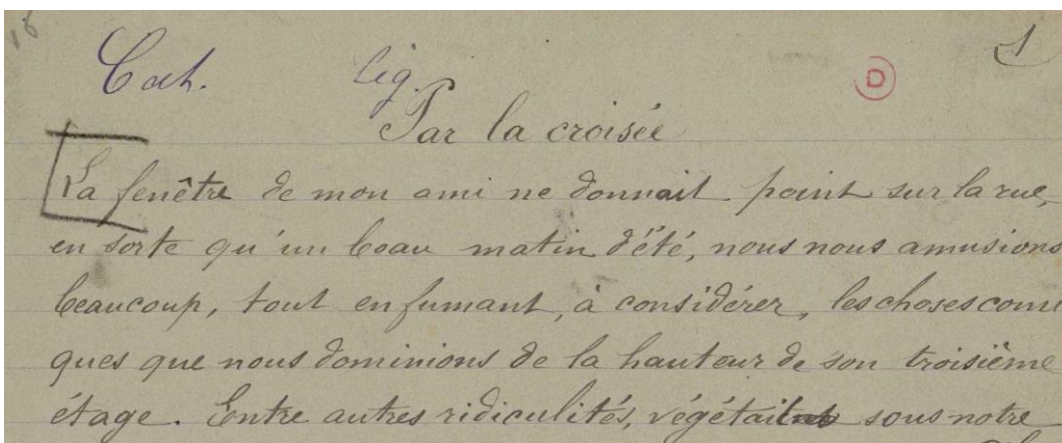 16
1
Cah. lig.
D
Par la croisée
La fenêtre de mon ami ne donnait point sur la rue,
en sorte qu'un beau matin d'été, nous nous amusions
beaucoup, tout en fumant, à considérer, les choses comi
ques que nous dominions de la hauteur de son troisième
étage. Entre autres ridiculités, végétait sous notre